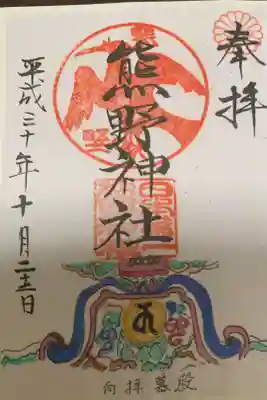 奉拝
熊野神社
平成三十年十月二十三日
向拝蟇股